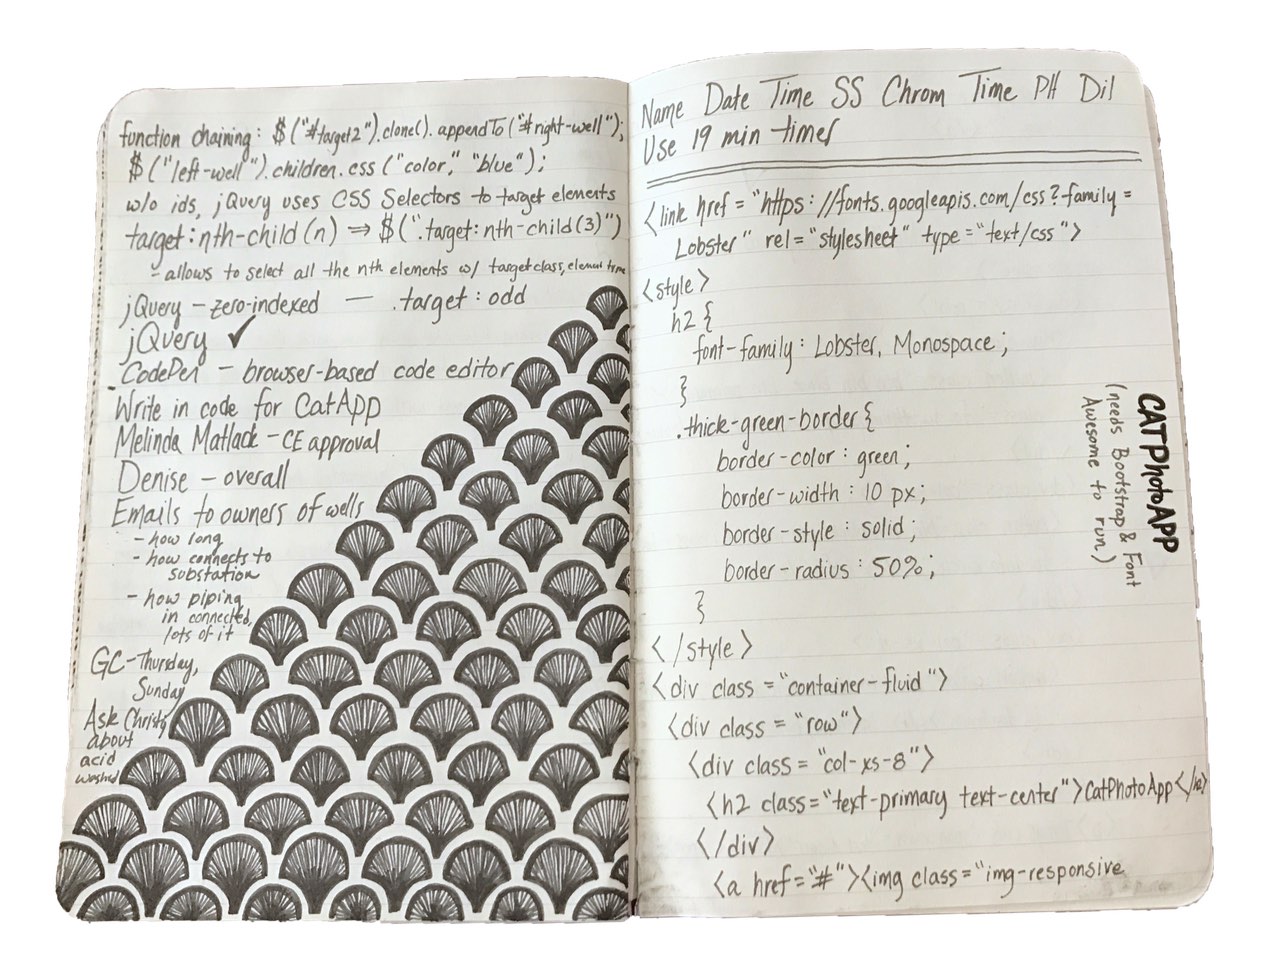 function chaining: $("#target2").clone().appendTo("#right-well");
$("left-well").children.css("color," "blue");
w/o ids, jQuery uses CSS Selectors to target elements
target:nth-child(n) ⇒ $(".target:nth-child(3)")
- allows to select all the nth elements w/ target class, element type
jQuery - zero-indexed — .target:odd
jQuery ✓
CodePen - browser-based code editor
Write in code for CatApp
Melinda Matlack - CE approval
Denise - overall
Emails to owners of wells
- how long
- how connects to
substation
- how piping
in connected,
lots of it
GC-Thursday,
Sunday
Ask Christy
about
acid
washed
Name Date Time SS Chrom Time PH Dil
Use 19 min timer
<link href="https://fonts.googleapis.com/css?family=
Lobster" rel="stylesheet" type="text/css">
<style>
h2 {
font-family: Lobster, Monospace;
}
.thick-green-border {
border-color: green;
border-width: 10 px;
border-style: solid;
border-radius: 50%;
}
</style>
<div class="container-fluid">
<div class="row">
<div class="col-xs-8">
<h2 class="text-primary text-center">CatPhotoApp</h2>
</div>
<a href="#"><img class="img-responsive
CATPhotoAPP
(needs Bootstrap & Font
Awesome to run)